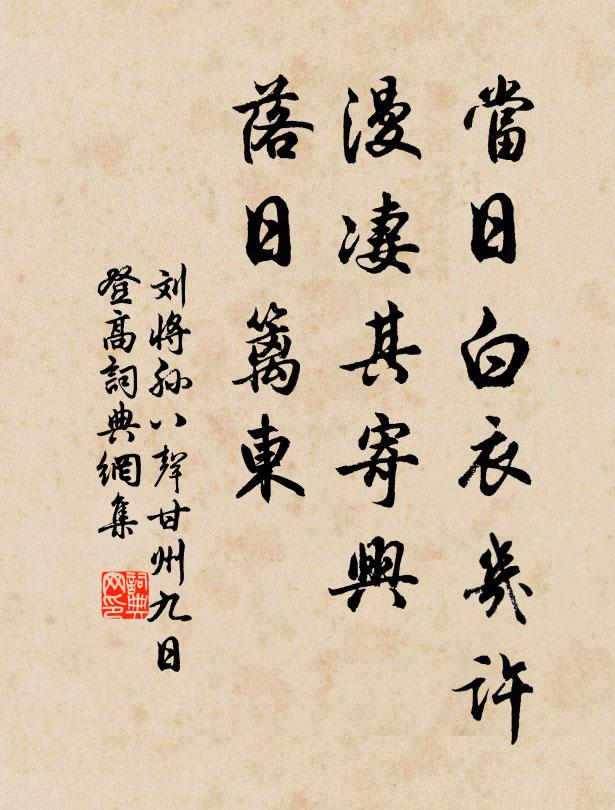 當日白衣幾許
漫淒其寄興
落日籬東
刘将孙八聲甘州九日
登高詞典網集
詞典
网印